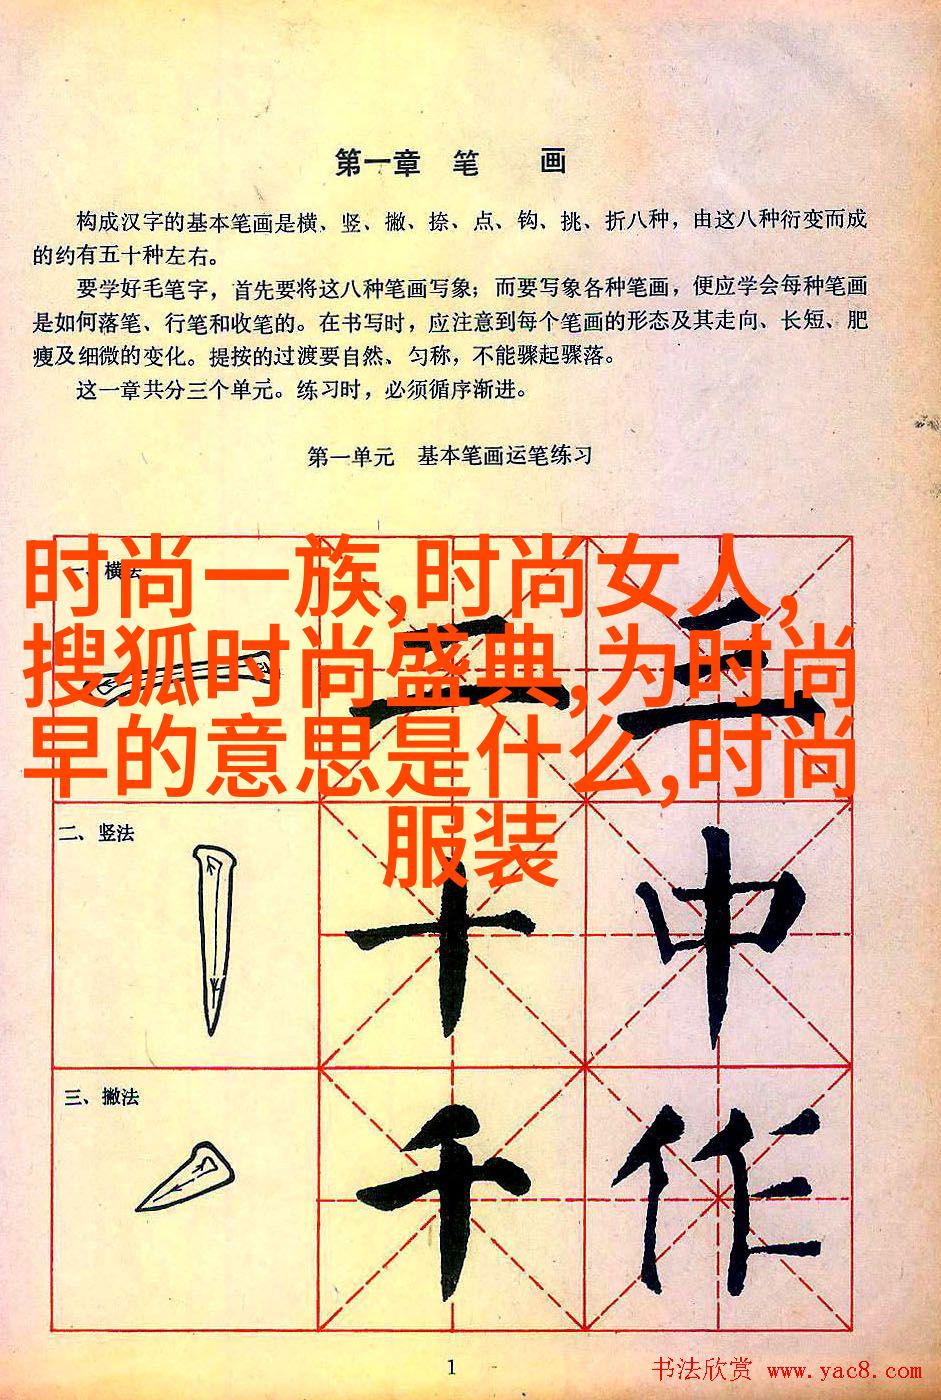 第一章 笔 画
构成汉字的基本笔画是横、竖、撇、捺、点、钩、挑、折八种，由这八种衍变而成
的约有五十种左右。
要学好毛笔字，首先要将这八种笔画写象；而要写象各种笔画，便应学会每种笔画
是如何落笔、行笔和收笔的。在书写时，应注意到每个笔画的形态及其走向、长短、肥
瘦及细微的变化。提按的过渡要自然、匀称，不能骤起骤落。
这一章共分三个单元。练习时，必须循序渐进。
第一单元 基本笔画运笔练习
一、横法
时尚一族,时尚女人,
搜狐时尚盛典,为时尚
早的意思是什么,时尚
服装
二 三
二、竖法
十 中
三、撇法
千 作
1
书法欣赏 www.yac8.com